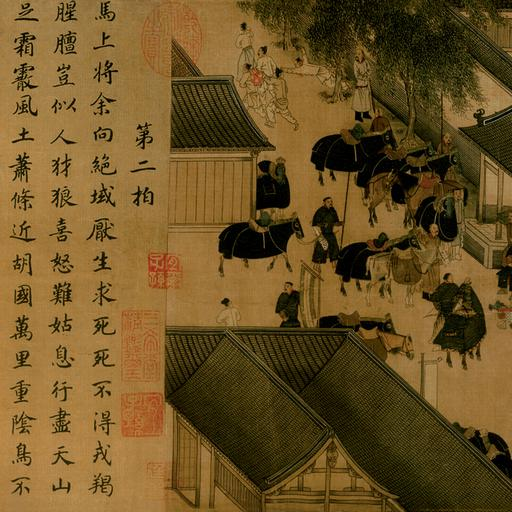 第二拍
馬上将余向絶域厭生求死死不得戎羯
腥膻豈似人犲狼喜怒難姑息行盡天山
足霜霰風土蕭條近胡國萬里重陰鳥不